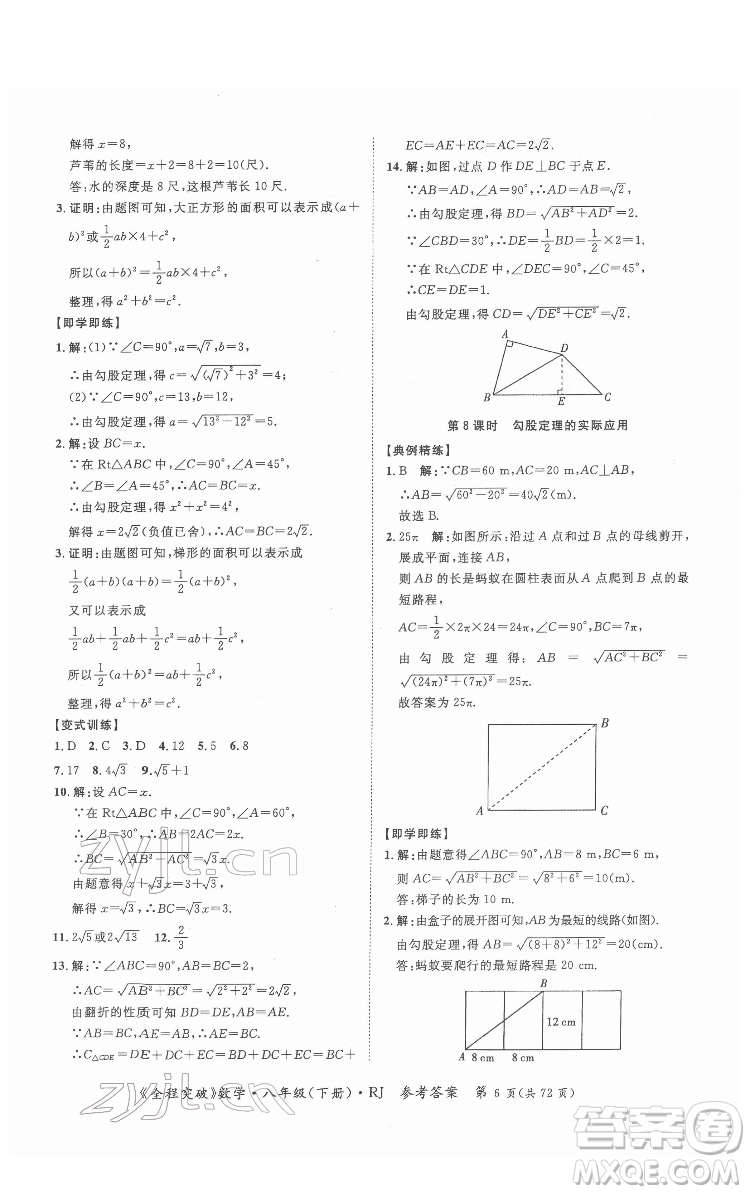 解得 x=8,
芦苇的长度=x+2=8+2=10(尺).
答:水的深度是 8 尺,这根芦苇长 10 尺.
3. 证明:由题图可知,大正方形的面积可以表示成(a+
b)²或 1/2 ab×4+c²,
所以(a+b)²=1/2 ab×4+c²,
整理,得 a²+b²=c².
【即学即练】
1. 解:(1)∵∠C=90°,a=√7,b=3,
∴由勾股定理,得 c=√((√7)²+3²)=4;
(2)∵∠C=90°,c=13,b=12,
∴由勾股定理,得 a=√(13²-12²)=5.
2. 解:设 BC=x.
∵在 Rt△ABC 中,∠C=90°,∠A=45°,
∴∠B=∠A=45°,∴AC=BC=x.
由勾股定理,得 x²+x²=4²,
解得 x=2√2(负值已舍),∴AC=BC=2√2.
3. 证明:由题图可知,梯形的面积可以表示成
1/2(a+b)(a+b)=1/2(a+b)²,
又可以表示成
1/2 ab+1/2 ab+1/2 c²=ab+1/2 c²,
所以 1/2(a+b)²=ab+1/2 c²,
整理,得 a²+b²=c².
【变式训练】
1. D 2. C 3. D 4. 12 5. 5 6. 8
7. 17 8. 4√3 9. √5+1
10. 解:设 AC=x.
∵在 Rt△ABC 中,∠C=90°,∠A=60°,
∴∠B=30°,∴AB=2AC=2x.
∴BC=√(AB²-AC²)=√3x.
由题意,得√3x=3,
解得 x=√3,∴AC=√3.
11. 2√5或2√13 12. 2/3
13. 解:∵∠ABC=90°,AB=BC=2,
∴AC=√(AB²+BC²)=√(2²+2²)=2√2.
由翻折的性质可知 BD=DE,AB=AE,
∵AB=BC,AE=AB,∴AE=BC.
∴C△CDE=DE+DC+EC=BD+DC+EC=BC+
EC=AE+EC=AC=2√2.
14. 解:如图,过点 D 作 DE⊥BC于点 E.
∵AB=AD,∠A=90°,AB=√2,
∴由勾股定理,得 BD=√(AB²+AD²)=2.
∵∠CBD=30°,∴DE=1/2 BD=1/2×2=1.
∵在 Rt△CDE 中,∠DEC=90°,∠C=45°,
∴CE=DE=1.
由勾股定理,得 CD=√(DE²+CE²)=√2.
A
D
B
E
C
第 8 课时 勾股定理的实际应用
【典例精练】
1. B 解:∵CB=60 m,AC=20 m,
∴AB=√(60²-20²)=40√2(m).
故选 B.
2. 25π 解:如图所示:沿过 A 点和过 B 点的母线剪开,
展成平面,连接 AB,
则 AB 的长是蚂蚁在圆柱表面从 A 点爬到 B 点的最
短路程,
AC=1/2×2π×24=24π,∠C=90°,BC=7π,
由 勾 股 定 理 得: AB = √(AC²+BC²) =
√((24π)²+(7π)²)=25π.
故答案为 25π.
B
A
C
【即学即练】
1. 解:由题意得∠ABC=90°,AB=8 m,BC=6 m,
则 AC=√(AB²+BC²)=√(8²+6²)=10(m).
答:梯子的长为 10 m.
2. 解:由盒子的展开图可知,AB 为最短的线路(如图).
由勾股定理,得 AB=√((8+8)²+12²)=20(cm).
答:蚂蚁要爬行的最短路程是 20 cm.
B
12 cm
A 8 cm 8 cm
《全程突破》数学·八年级(下册)·RJ 参考答案 第 6 页(共 72 页)
zyjl.cn
zyjl.cn
答案圈
MXQE.COM